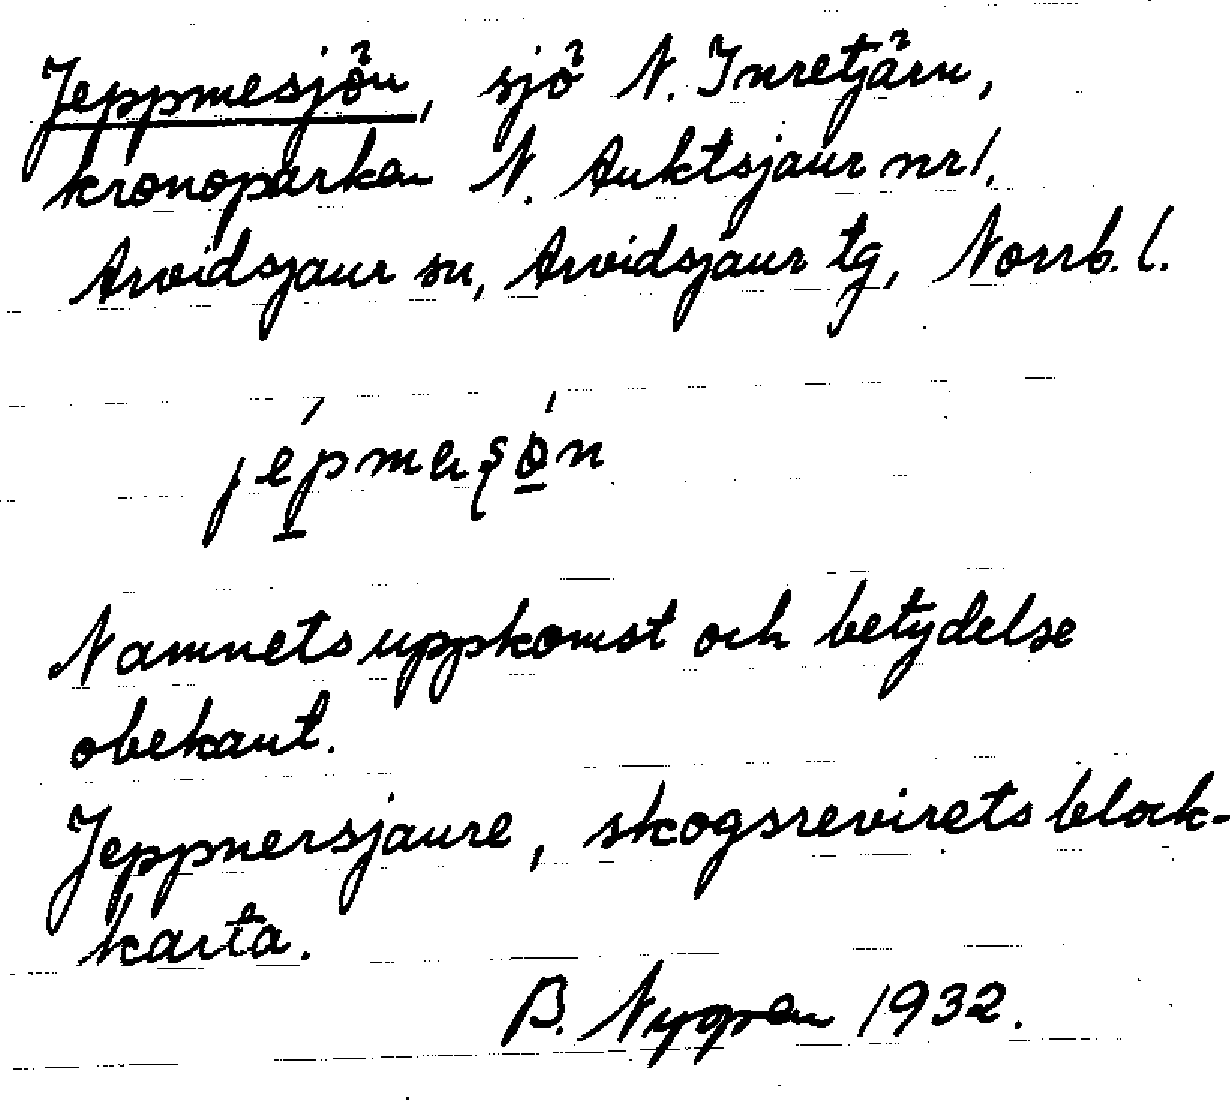 Jeppmesjön, sjö N. Inretjärn,
kronoparken N. Auktsjaur nr 1,
Arvidsjaur sn, Arvidsjaur tg, Norrb. l.
Namnets uppkomst och betydelse
obekant.
Jeppnersjaure, skogsrevirets block-
karta.
B. Nygren 1932.